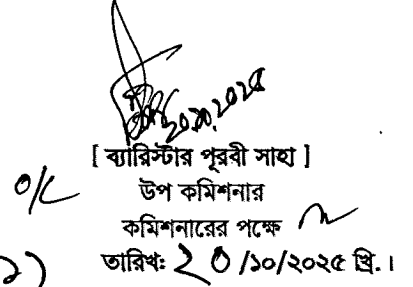 ২০.১০.২০২৫
[ ব্যারিস্টার পূরবী সাহা ]
o/c
উপ কমিশনার
কমিশনারের পক্ষে
তারিখঃ ২০ /১০/২০২৫ খ্রি. ।